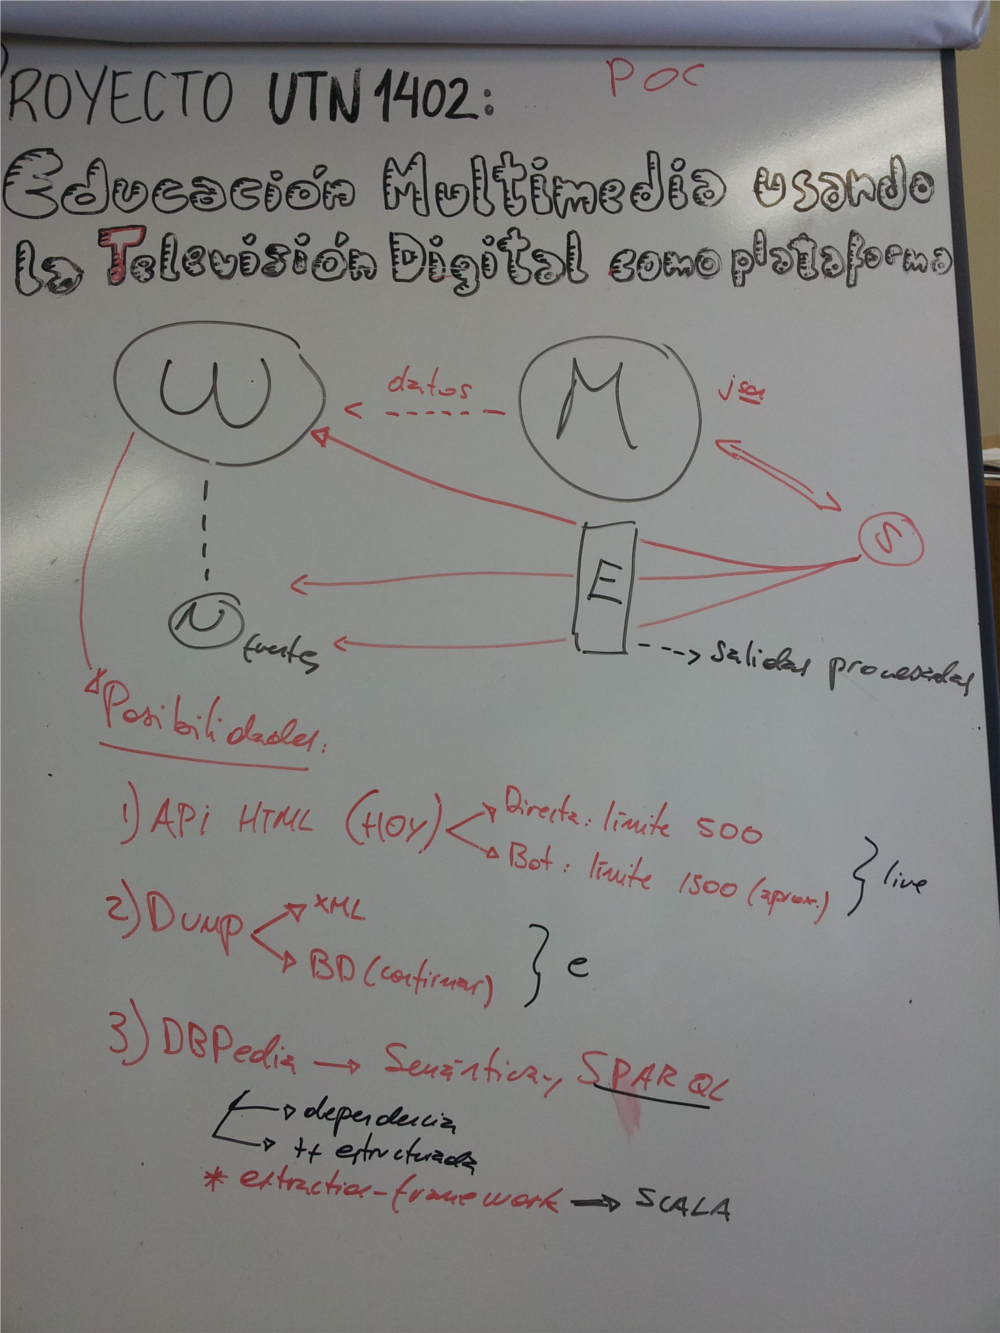 PROYECTO UTN 1402:
POC
Educación Multimedia usando
la Televisión Digital como plataforma
W
datos
M
json
S
E
N
fuentes
salidas procesadas
Posibilidades:
1) API HTML (HOY)
Directa: límite 500
Bot: límite 1500 (aprox.)
live
2) DUMP
XML
BD (confirmar)
e
3) DBPedia → Semántica, SPARQL
dependencia
++ estructurada
* extraction-framework → SCALA